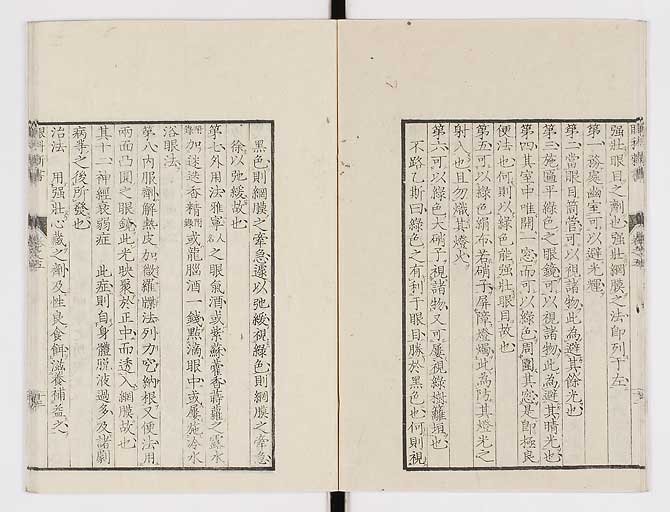 强壯眼目之劑也强壯網膜之法即列于左
第一 務處幽室可以避光輝
第二 當眼目筒管可以視諸物此為避其餘光也
第三 施匾平綠色之眼鏡可以視諸物此為避其晴光也
第四 其室中唯開一窓而可以綠色周圍其窓是即極良
便法也何則以綠色能强壯眼目故也
第五 可以綠色絹布若硝子屏障燈燭此為防其燈光之
射入也且勿熾其燈火
第六 可以綠色大硝子視諸物又可屢視綠樹蘿垣也
不路乙斯曰綠色之有利于眼目勝於黑色也何則視
黑色則網膜之牽急遽以弛緩視綠色則網膜之牽急
徐以弛緩故也
第七 外用法雅寧人名之眼氣酒或紫蘇藿香蒔蘿之露水
附錄加迷迭香精附錄或龍腦酒一錢點滴眼中或屢施冷水
浴眼法
第八 內服劑解熱皮加微羅牒法列力窊納根又便法用
兩面凸圓之眼鏡此光映聚於正中而透入網膜故也
其十二神經衰弱症 此症則自身體脫液過多及諸劇
病等之後所發也
治法 用强壯心藏之劑及性良食餌滋養補益之
眼科新書